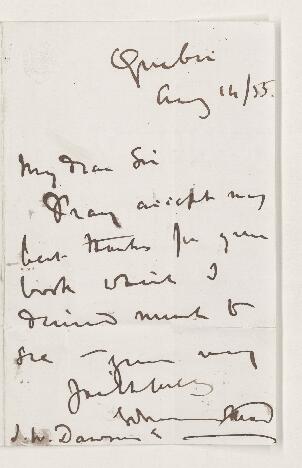 Quebec
Aug 14/55.
My dear Sir
Pray accept my
best thanks for your
book which I
desired much to
see – yours very
faithfully
Edmund Head
J. W. Dawson